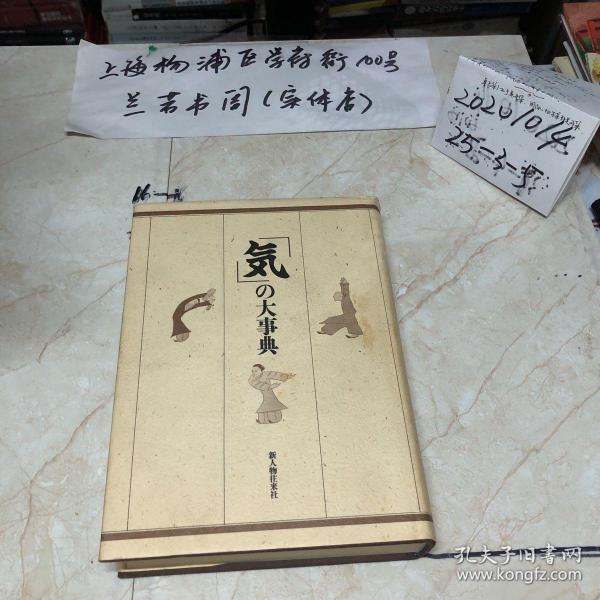 上海杨浦区学府街100号
兰芳书阁(实体店)
20201014
「気」の大事典
新人物往来社
孔夫子旧书网
www.kongfz.com